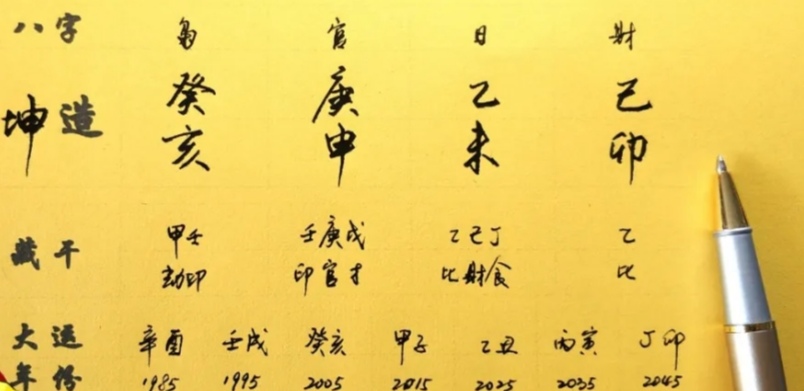 八字 枭 官 日 财
坤造 癸 庚 乙 己
亥 申 未 卯
藏干 甲壬 壬庚戊 乙己丁 乙
劫印 印官才 比财食 比
大运 辛酉 壬戌 癸亥 甲子 乙丑 丙寅 丁卯
年份 1985 1995 2005 2015 2025 2035 2045